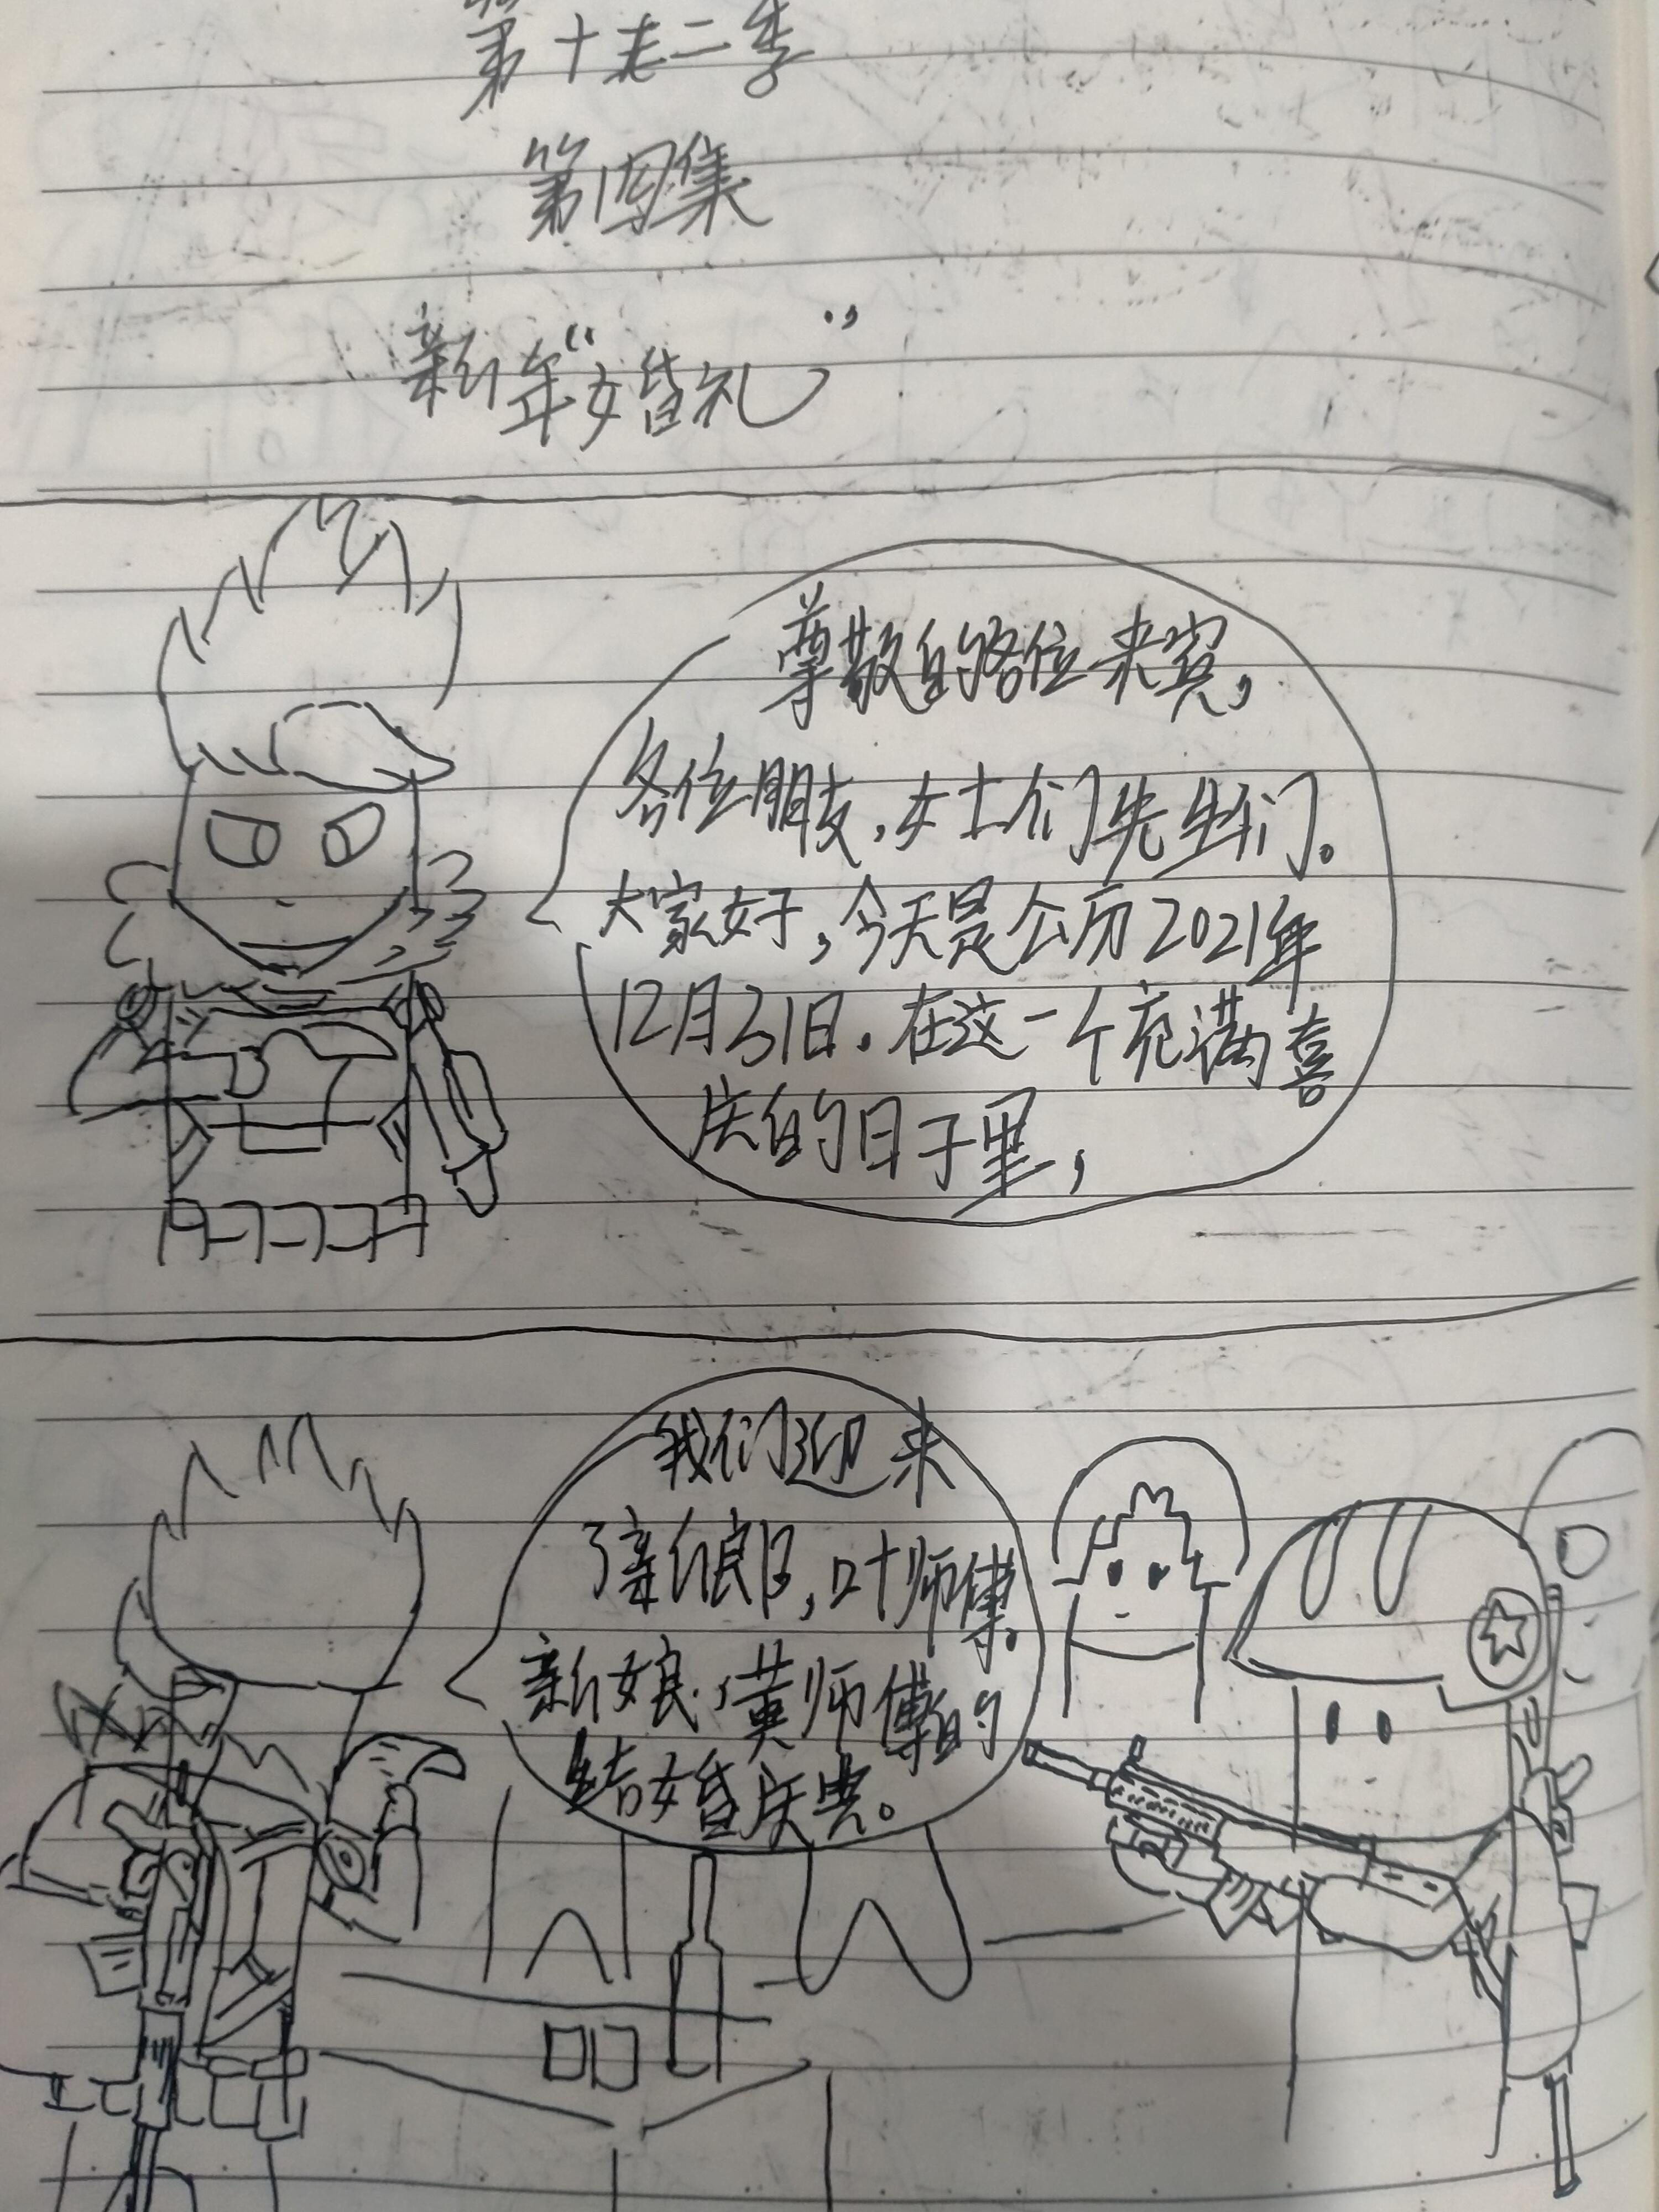 第十志二季
第四集
新年“婚礼”
尊敬的各位来宾，
各位朋友，女士们先生们。
大家好，今天是公历2021年
12月31日。在这一个充满喜
庆的日子里，
我们迎来
了新郎，叶师傅。
新娘，黄师傅的
结婚庆典。